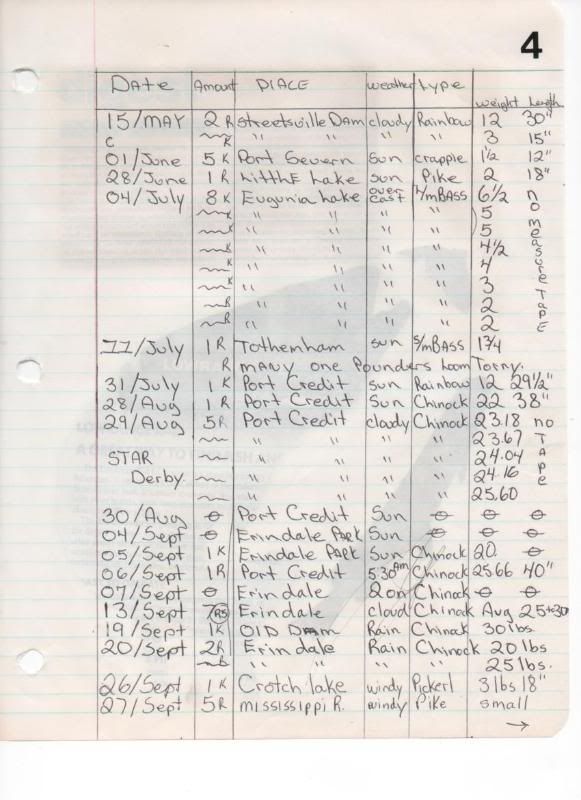 4
Date Amount Place weather type weight length
15/MAY 2 R Streetsville Dam cloudy Rainbow 12 30"
c K " " " " 3 15"
01/June 5 K Port Severn Sun crappie 1 1/2 12"
28/June 1 R Little Lake sun Pike 2 18"
04/July 8 K Eugunia Lake over cast L/mBASS 6 1/2 no measure TAPE
K " " " " 5
K " " " " 5
K " " " " 4 1/2
K " " " " 4
K " " " " 3
R " " " " 2
R " " " " 2
11/July 1 R Tothenham sun S/mBASS 1 3/4
R many one Pounders Loom Torny.
31/July 1 K Port Credit Sun Rainbow 12 29 1/2"
28/Aug 1 R Port Credit Sun Chinock 22 38"
29/Aug 5 R Port Credit cloudy Chinock 23.18 no TAPE
" " " " 23.67
STAR " " " " 24.04
Derby. " " " " 24.16
" " " " 25.60
30/Aug 0 Port Credit Sun 0 0 0
04/Sept 0 Erindale PARK Sun 0 0 0
05/Sept 1K Erindale PARK Sun Chinock 20. 0
06/Sept 1R Port Credit 5:30am Chinock 25.66 40"
07/Sept 0 Erindale Chinock 0
13/Sept 7 Erindale cloud Chinock Aug 25+30
19/Sept 1K Old Dam Rain Chinock 30 lbs
20/Sept 2R Erindale Rain Chinock 20 lbs
" " " " 25 lbs.
26/Sept 1K Crotch lake windy Pickerl 3 lbs 18"
27/Sept 5R mississippi R. windy Pike small
→